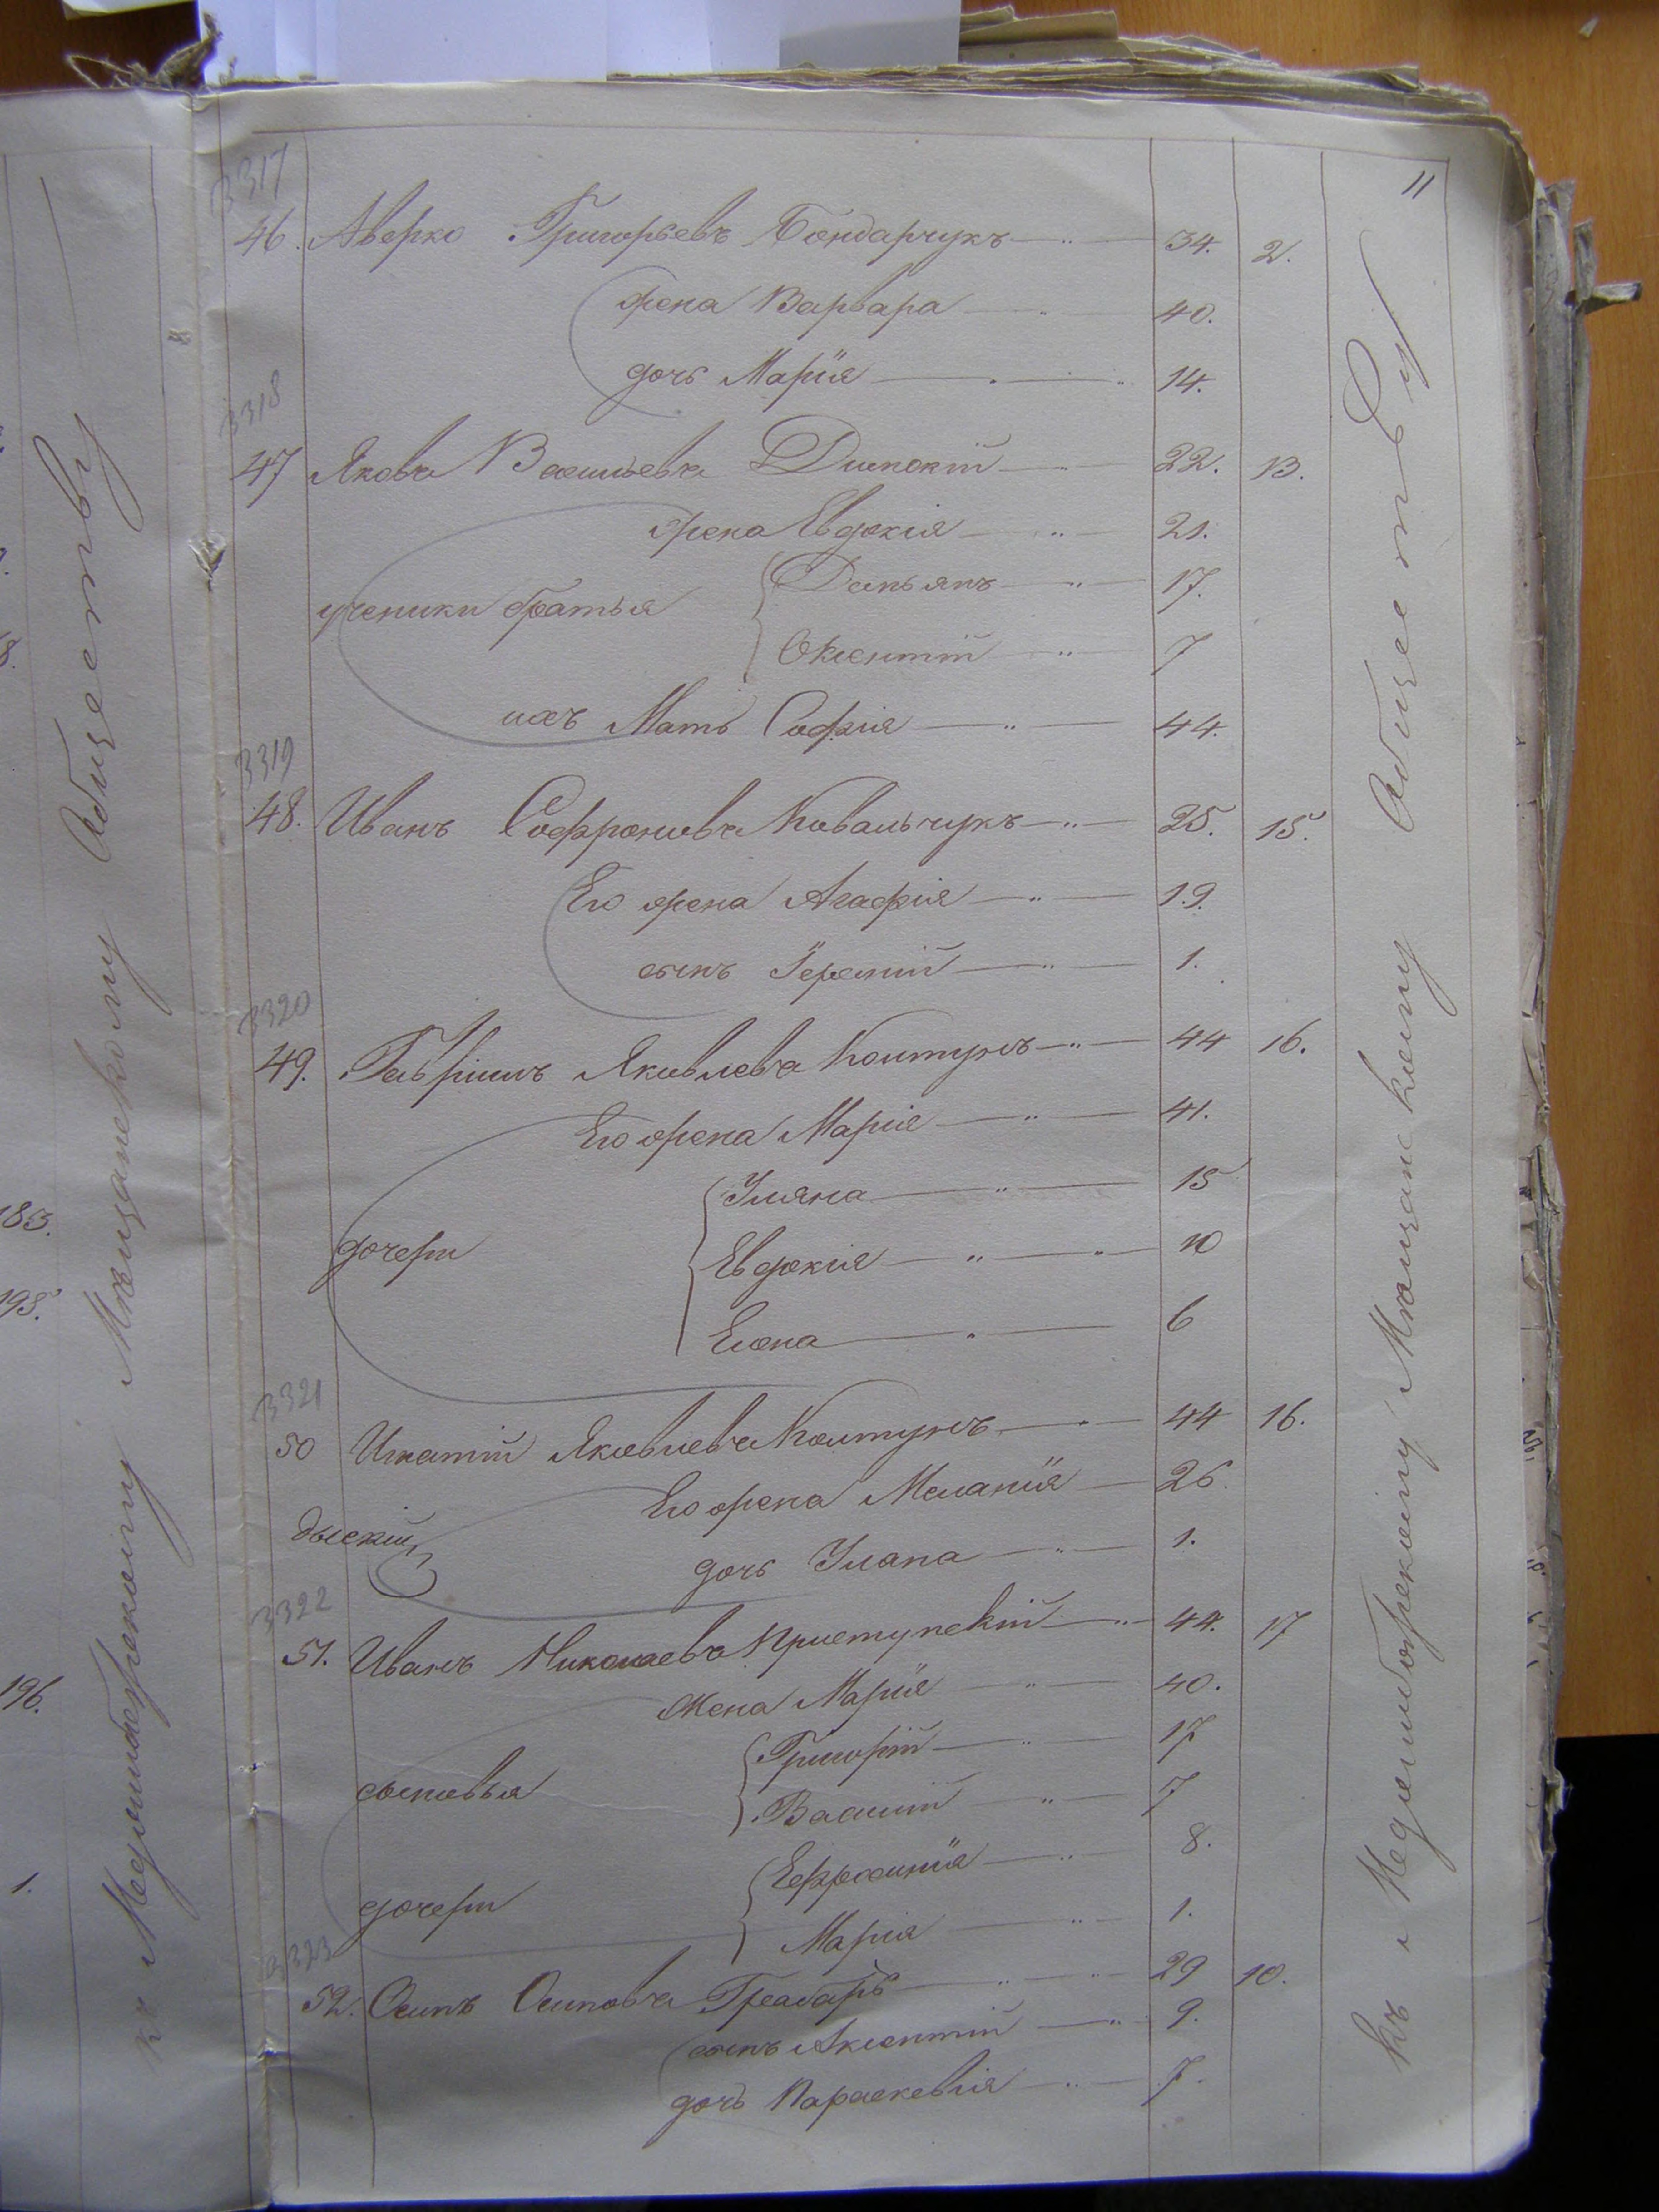 11
3317
46. Аверко Григорьевъ Бондарчукъ 34. 2.
жена Варвара 40.
дочь Марія 14.
3318
47 Яковъ Васильевъ 22. 13.
жена Евдокія 21.
ученики братья Демьянъ 17.
7
ихъ Мать Софія 44.
3319
48. Иванъ Софроновъ Ковальчукъ 25. 15.
Его жена Агафія 19.
сынъ Іеремій 1.
3320
49. Гавріилъ Яковлевъ Колтунъ 44 16.
Его жена Марія 41.
Уляна 15
дочери Евдокія 10
Елена 6
3321
50 Игнатій Яковлевъ Колтунъ 44 16.
Его жена Меланія 26.
дочь Уляна 1.
3322
51. Иванъ Николаевъ Приступскій 44. 17
жена Марія 40.
Григорій 17
сыновья Василій 7
Ефросинія 8.
дочери Марія 1.
3323
52. Осипъ Осиповъ 29 10.
сынъ Аксентій 9.
дочь Параскевія 7.
къ Меджибожскому Мѣщанскому Обществу
къ Меджибожскому Мѣщанскому Обществу
8.
185.
195.
196.
1.